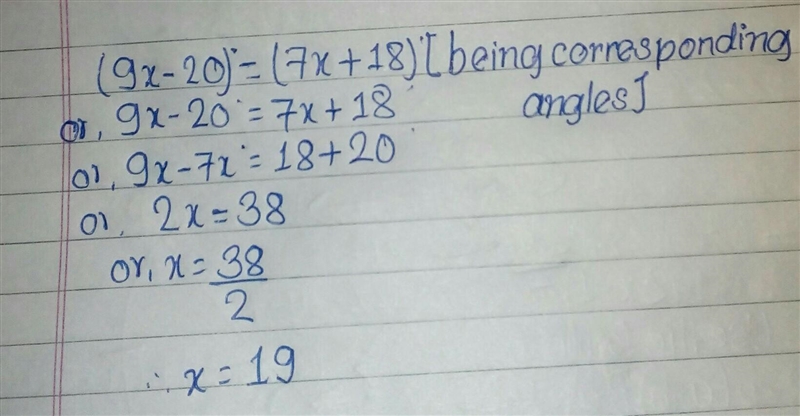 (9x-20)°=(7x+18)°[being corresponding angles]
or, 9x-20°=7x+18°
or, 9x-7x°=18+20°
or, 2x=38
or, x=38/2
∴ x=19